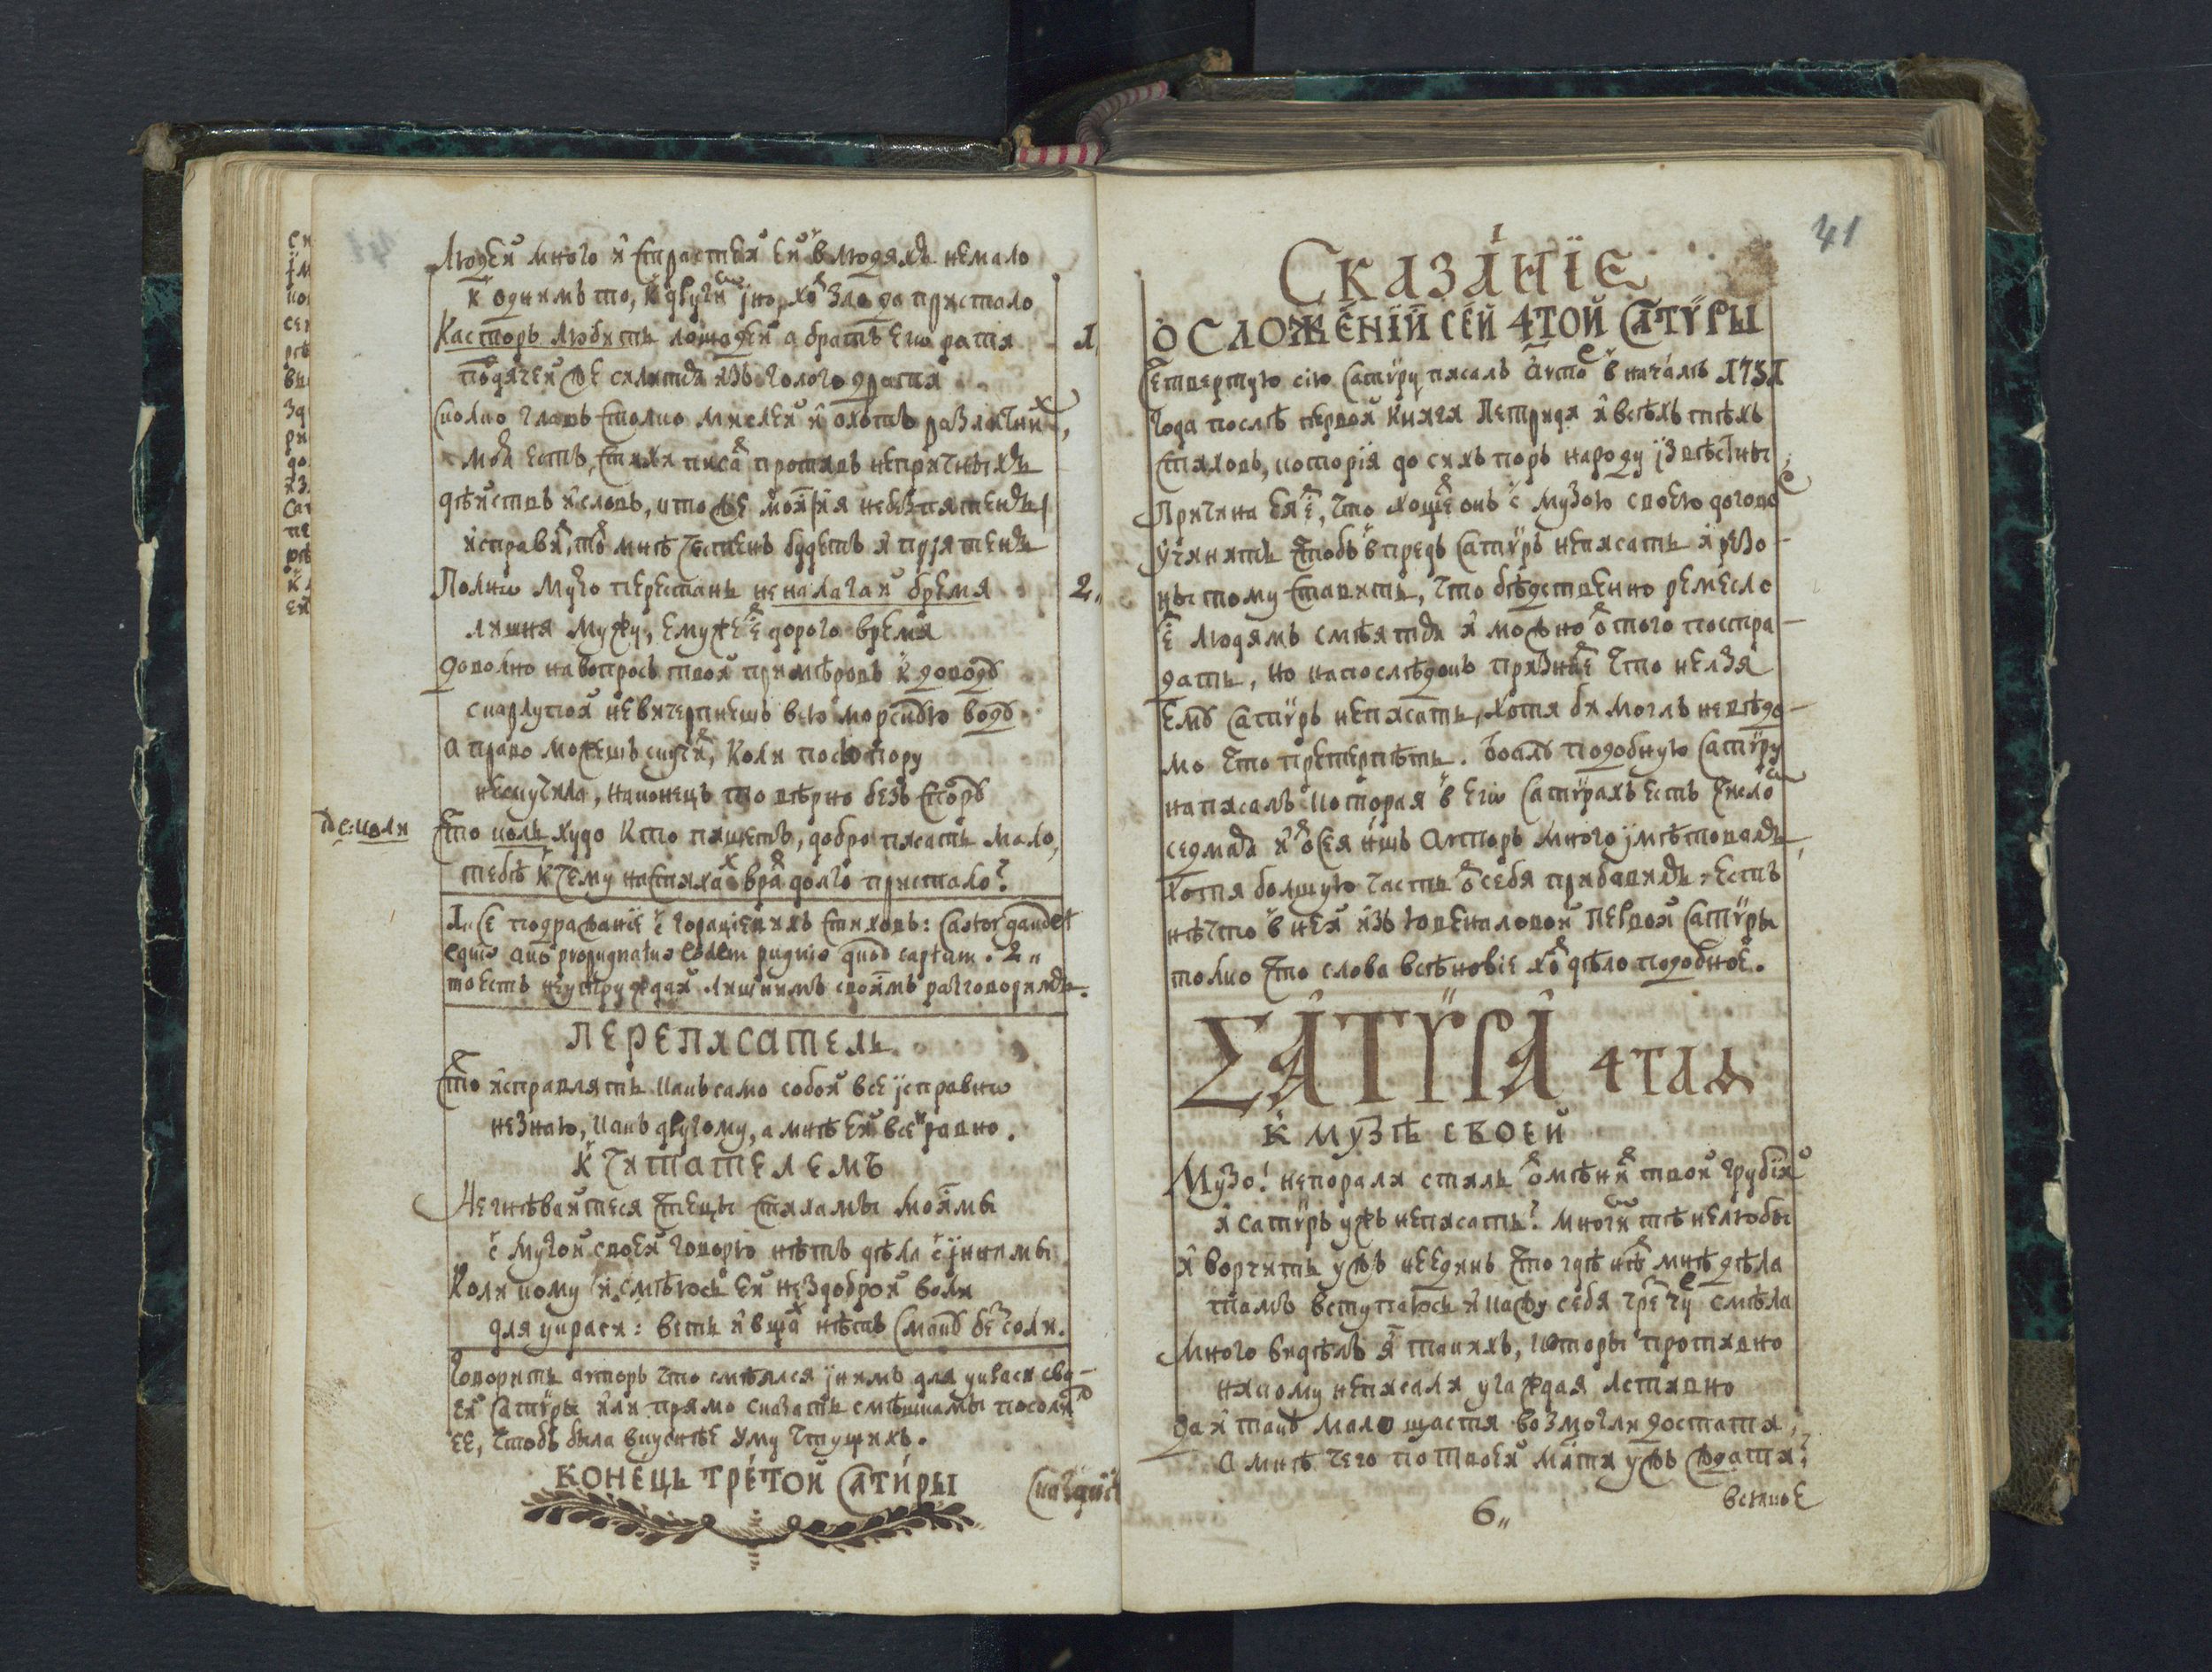 Людей много и страстей ей в людях немало
к одним то, к другим ино, хоть зло да пристало
Касторъ любитъ лошадей а братъ его рати
подячей же силитъ изъ голого драти
Сколко главъ столко мислей и охотъ различних,
моя есть, стихи писать противъ непричныхъ
дѣйствъ и словъ, кто же мои сия небезпятенъ
исправитъ, то мнѣ честенъ будетъ и приятенъ
Полно Музо перестань не налагай бремя
лишня мужу, ему же есть дорого время
доволно на вопросъ твой примѣровъ к доводу
скарлупой невичерпнешъ всю морскую воду
а право можешъ скучить, коли по сю пору
нескучила, наконецъ то вѣрно безъ спору
то: коли
Что коль худо кто пишетъ, добро писать мало,
тебѣ к чему на стихах врать долго пристало?
1. Се подражание с горациевихъ стиховъ: Castor gaudet
equis ovo prognatus eodem pugnis quod captum. 2„
то есть неутруждай лишнимъ своимъ разговоримъ.
ПЕРЕПИСАТЕЛЬ
Что исправлять какъ само собой все исправно
незнаю, какъ другому, а мнѣ ей все равно.
К ЧИТАТЕЛЕМЪ
Негнѣвайтеся чтецы стихамы моимы
с музой своей говорю нѣтъ дѣла с инимы
Коли кому и смѣюсь ей не з доброй воли
для украси: веть и в щах нѣтъ смаку без соли.
Говоритъ авторъ что смѣялся инимъ для украси сво-
ей сатиры или прямо сказать смѣшкамы посолить
ее, чтобъ была вкуснѣе уму чтущихъ.
КОНЕЦЬ ТРЕТОЙ САТИРЫ
Сказание
41
СКАЗАНИЕ
О СЛОЖЕНИЙ СЕЙ 4ТОЙ САТИРЫ
Четвертую сию Сатиру писалъ Авторъ в началѣ 1731
года послѣ первой книги Петриди и всѣхъ тѣхъ
стиховъ, котория до сихъ поръ народу извѣстны,
Причина ея есть, что хощетъ онъ с музою своею договор
учинить чтобъ впредь сатиръ неписать и резо-
ны тому ставить, что бѣдственно ремесло
есть людямъ смѣятся и можно от того постра-
дать, но напослѣдокъ признаетъ что нелзя
ему сатиръ неписать, хотя би моглъ невѣдо-
мо что претерпѣть. Боалъ подобную сатиру
написалъ котория в его сатирахъ есть числом
седмая и от сея нашъ Авторъ много имѣтовалъ,
хотя болшую часть от себя прибавилъ, есть
нѣчто в ней изъ Ювеналовой первой сатиры
толко что слова всѣ новие хоть дѣло подобное.
САТИРА 4ТАЯ
К МУЗѢ СВОЕЙ
Музо! непорали стиль отмѣнить твой грубий
и сатиръ ужъ неписать? многим тѣ нелюбы
и ворчитъ ужъ неединъ что гдѣ нѣтъ мнѣ дѣла
тамъ вступаюсь и кажу себя чрез чур смѣла
Много видѣлъ я такихъ, которы противно
никому неписали угаждая лстивно
да и такъ мало щастя возмогли достати,
А мнѣ чего по твоей мѣти ужъ ждати?
всякое
6„